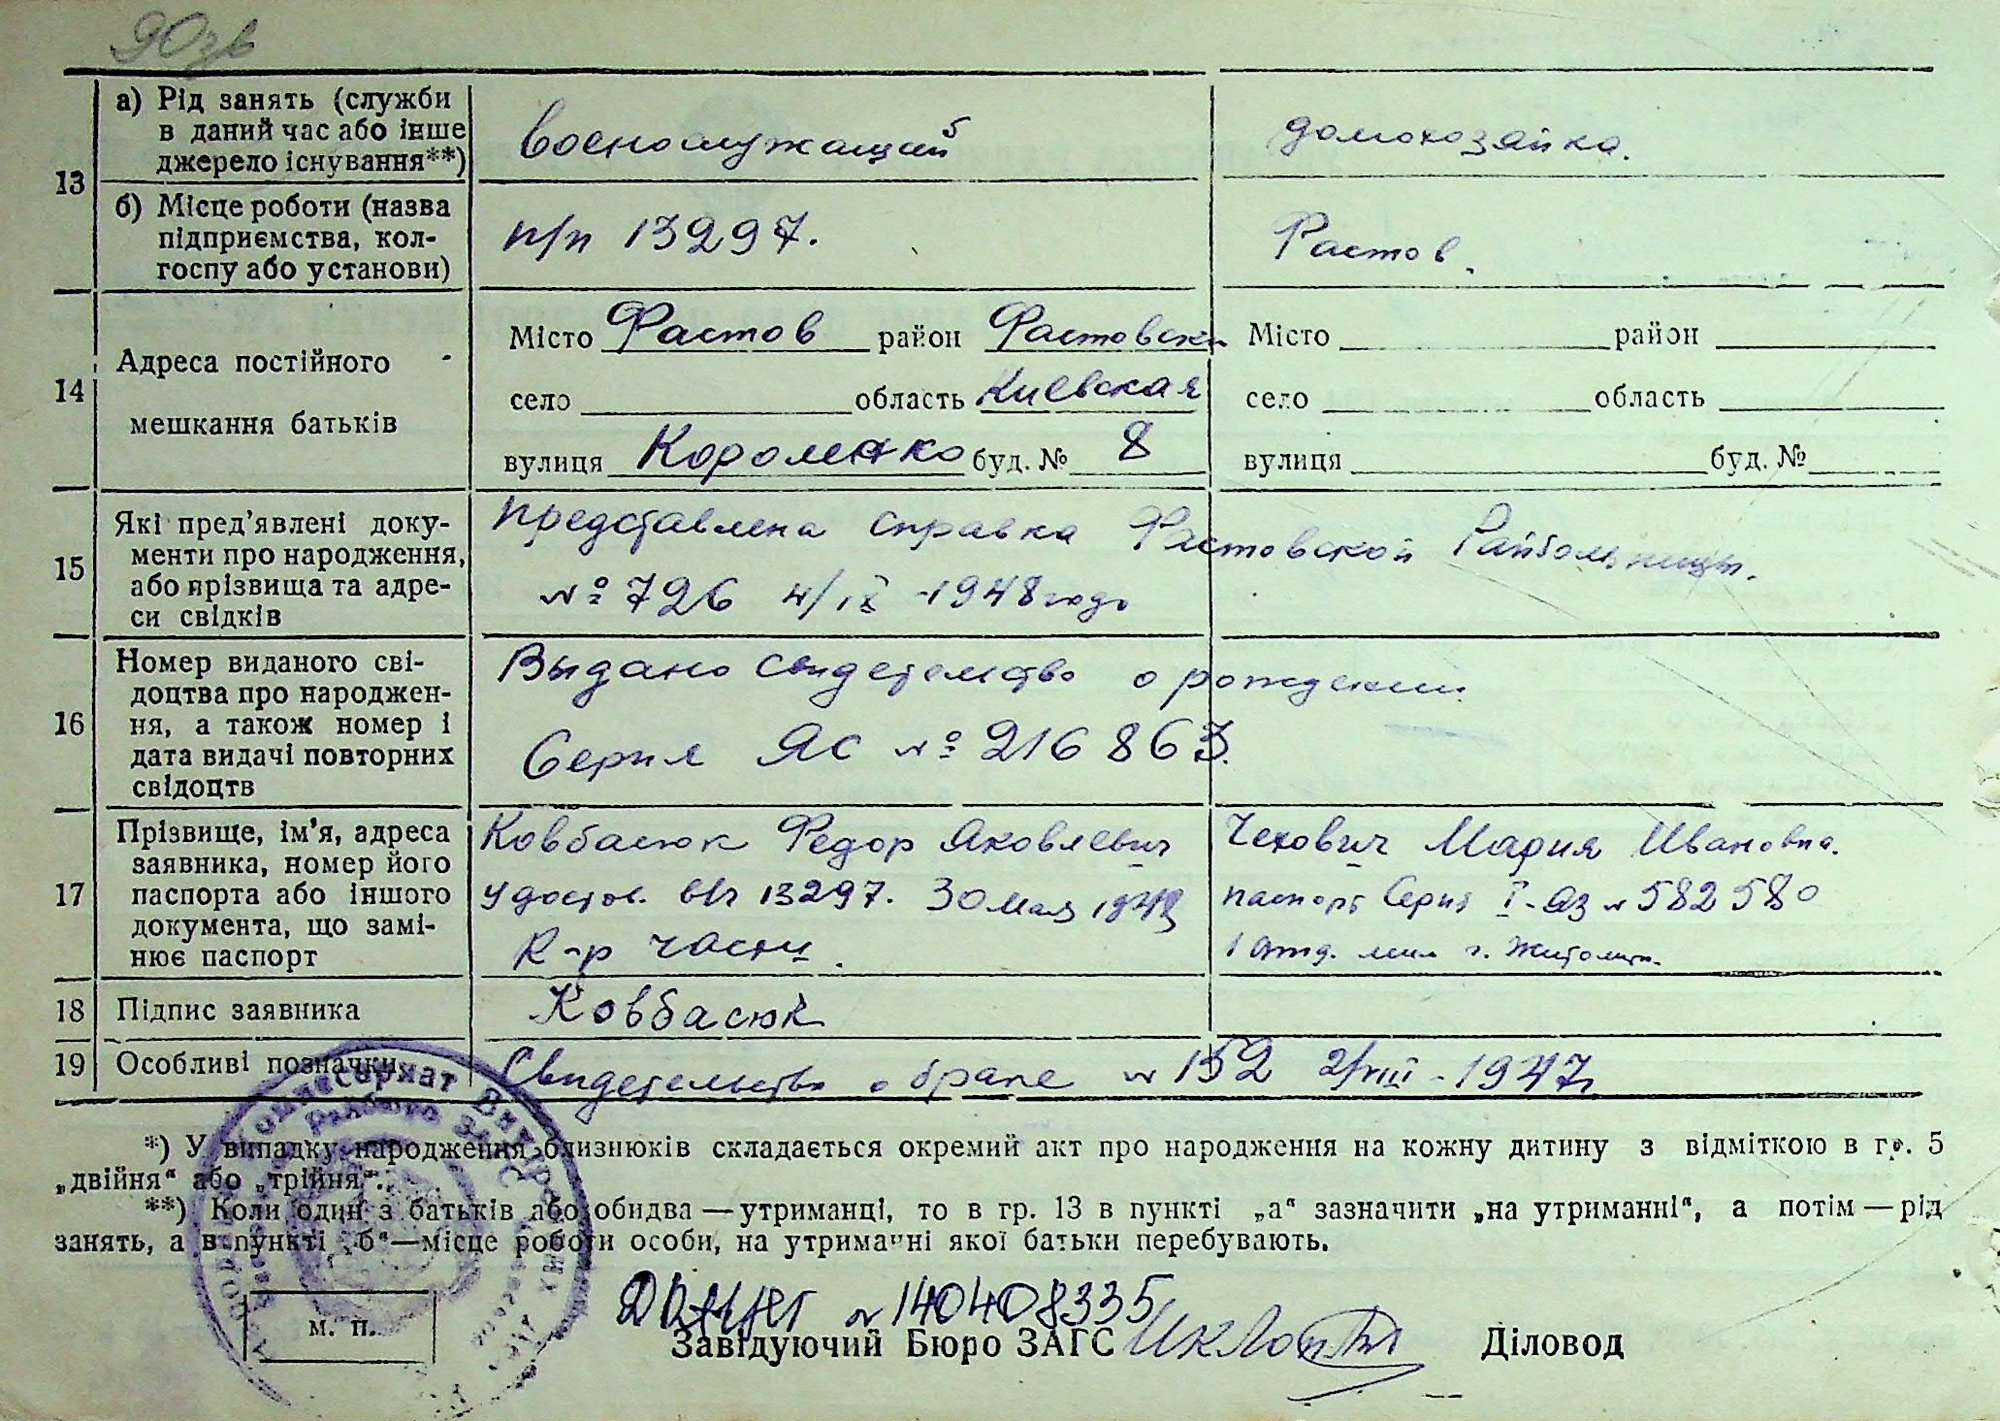 90зв
13
а) Рід занять (служби
в даний час або інше
джерело існування**)
военнослужащий
домохозяйка.
б) Місце роботи (назва
підприємства, кол-
госпу або установи)
п/п 13297.
Фастов.
14
Адреса постійного
мешкання батьків
Місто Фастов район Фастовски
село область Киевская
вулиця буд. № 8
Місто район
село область
вулиця буд. №
15
Які пред’явлені доку-
менти про народження,
або прізвища та адре-
си свідків
представлена справка Фастовской Райбольницы.
№ 726 4/IX-1948 года
16
Номер виданого сві-
доцтва про народжен-
ня, а також номер і
дата видачі повторних
свідоцтв
Выдано свидетельство о рождении.
Серия ЯС № 216863.
17
Прізвище, ім’я, адреса
заявника, номер його
паспорта або іншого
документа, що замі-
нює паспорт
Ковбасюк Федор Яковлевич
удостов. в/ч 13297. 30 мая 1948
К-р части.
Чехович Мария Ивановна.
паспорт Серия I-ЯЗ № 582580
1 отд. мил г. Житомир.
18
Підпис заявника
Ковбасюк
19
Особливі позначки
Свидетельство о браке № 152 2/VIII-1947г
*) У випадку народження близнюків складається окремий акт про народження на кожну дитину з відміткою в гр. 5
„двійня“ або „трійня“.
**) Коли один з батьків або обидва — утриманці, то в гр. 13 в пункті „а“ зазначити „на утриманні“, а потім — рід
занять, а в пункті „б“—місце роботи особи, на утриманні якої батьки перебувають.
№ 140408335
м. п.
Завідуючий Бюро ЗАГС
Діловод